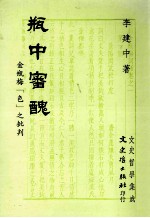 李建中著
瓶中審醜
金瓶梅「色」之批判
文史哲學集成
文史哲出版社印行